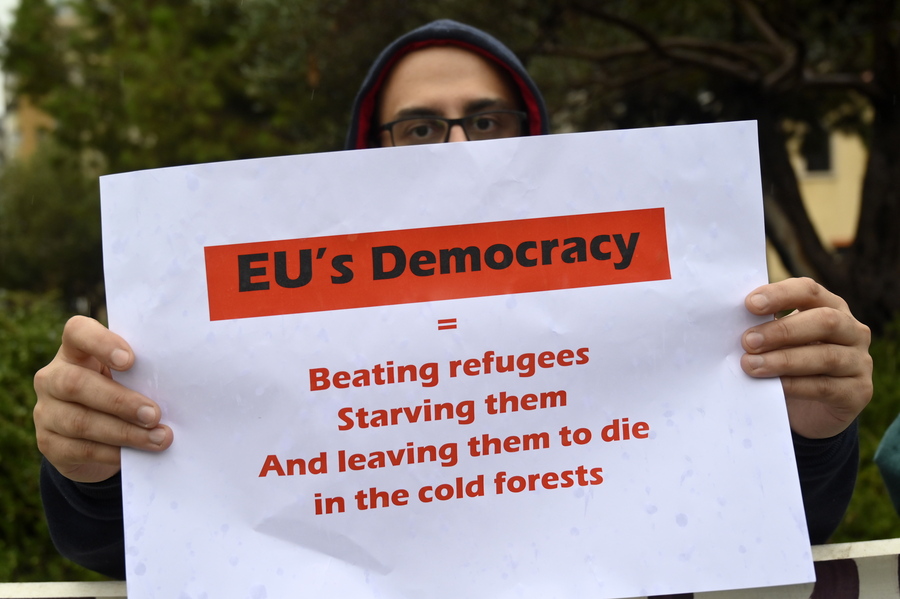 EU's Democracy
=
Beating refugees
Starving them
And leaving them to die
in the cold forests